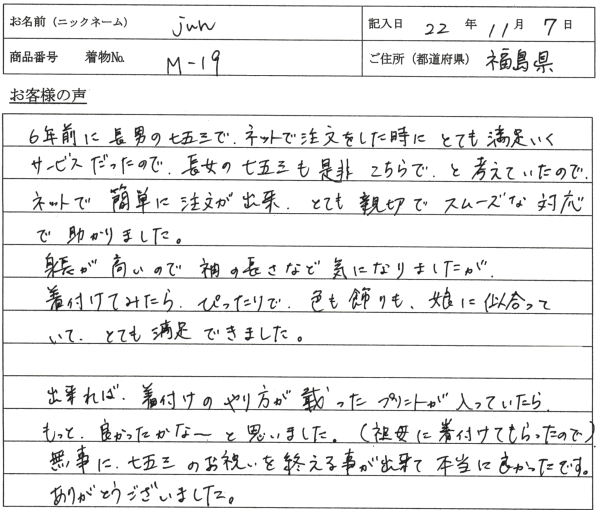 お名前（ニックネーム） jun 記入日 22 年 11 月 7 日
商品番号 着物No. M-19 ご住所（都道府県） 福島県
お客様の声
6年前に長男の七五三で、ネットで注文をした時にとても満足いく
サービスだったので、長女の七五三も是非こちらで、と考えていたので、
ネットで簡単に注文が出来、とても親切でスムーズな対応
で助かりました。
身長が高いので袖の長さなど気になりましたが、
着付けてみたら、ぴったりで、色も飾りも、娘に似合って
いて、とても満足できました。
出来れば、着付けのやり方が載ったプリントが入っていたら、
もっと、良かったかな～と思いました。（祖母に着付けてもらったので）
無事に、七五三のお祝いを終える事が出来て本当に良かったです。
ありがとうございました。